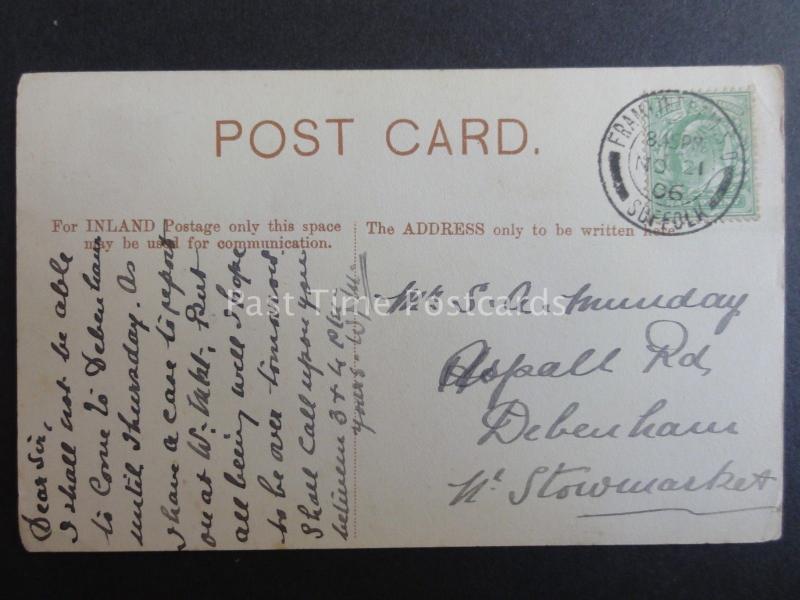 POST CARD.
For INLAND Postage only this space
may be used for communication.
The ADDRESS only to be written here
FRAMLINGHAM S.O
8.45PM
NO 21
06
SUFFOLK
Dear Sir,
I shall not be able
to come to Debenham
until Thursday. As
I have a case to report
on at W. Mkt. But
all being well I hope
to be over tomorrow.
Shall call upon you
between 3 & 4 P.M.
yours
Mr S. A. Munday
Aspall Rd,
Debenham
Nr Stowmarket
Past Time Postcards